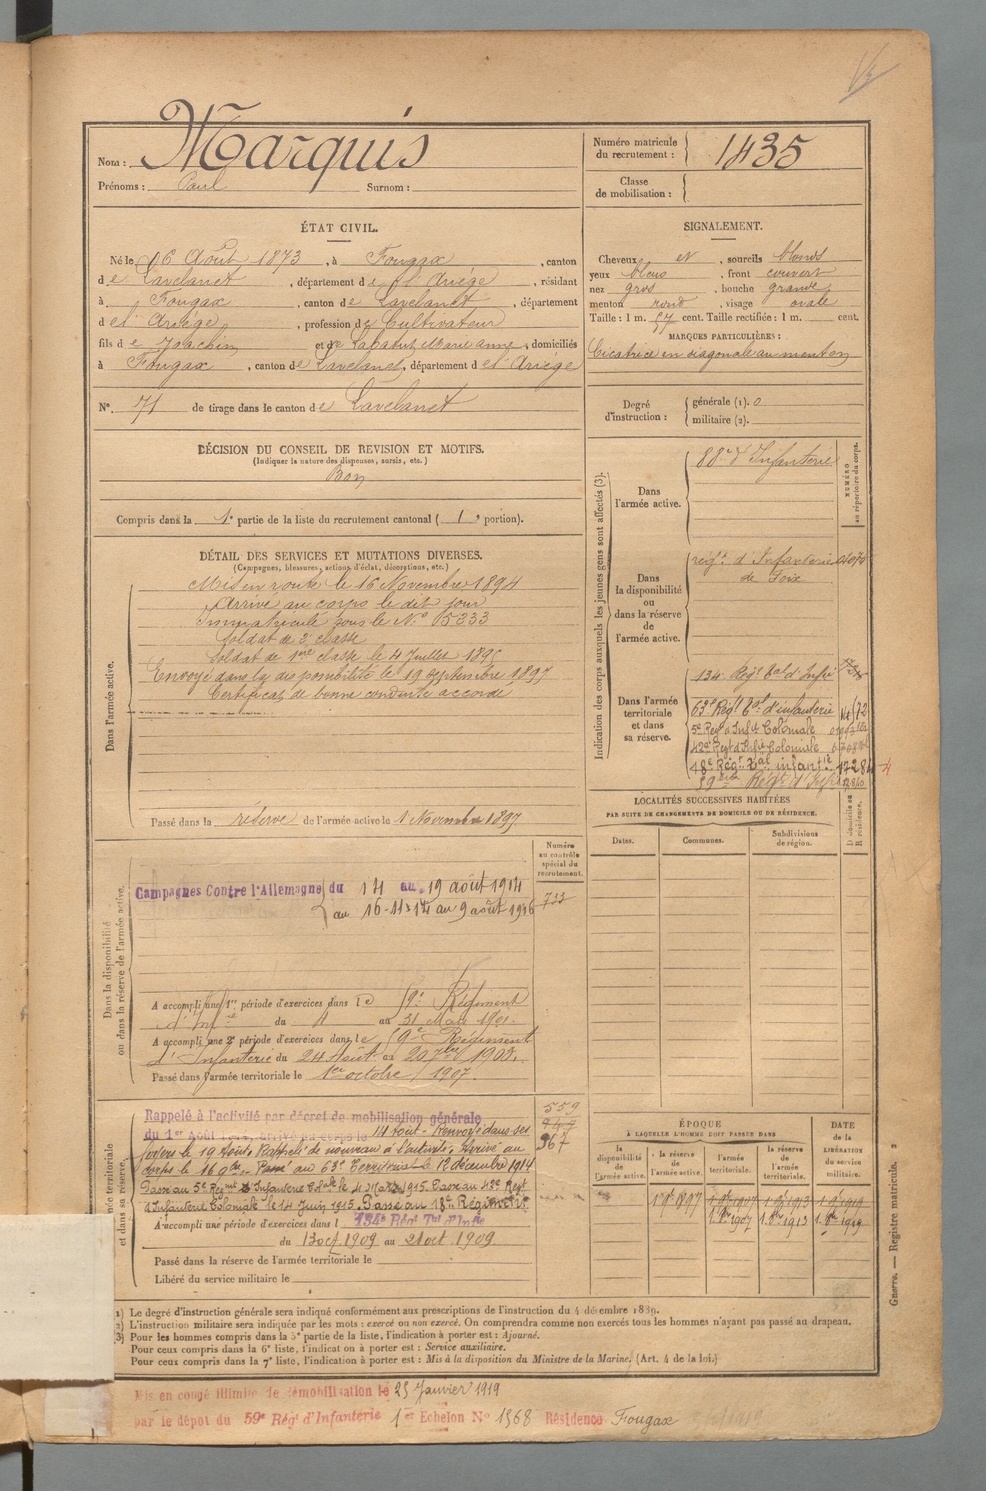 Nom : Marquis
Prénoms : Paul Surnom :
Numéro matricule du recrutement : 1435
Classe de mobilisation :
ÉTAT CIVIL.
Né le 6 Août 1873, à Fougax, canton
de Lavelanet, département de l'Ariége, résidant
à Fougax, canton de Lavelanet, département
de l'Ariége, profession de Cultivateur
fils de Joachin et de Marie anne, domiciliés
à Fougax, canton de Lavelanet, département de l'Ariége
N° 71 de tirage dans le canton de Lavelanet
SIGNALEMENT.
Cheveux et, sourcils blonds
yeux bleus, front couvert
nez gros, bouche grande
menton rond, visage ovale
Taille : 1 m. 57 cent. Taille rectifiée : 1 m. cent.
MARQUES PARTICULIÈRES :
Cicatrice en diagonale au menton
Degré d'instruction : générale (1). 0
militaire (2).
DÉCISION DU CONSEIL DE REVISION ET MOTIFS.
(Indiquer la nature des dispenses, sursis, etc.)
Bon
Compris dans la 1e partie de la liste du recrutement cantonal (1e portion).
DÉTAIL DES SERVICES ET MUTATIONS DIVERSES.
(Campagnes, blessures, actions d'éclat, décorations, etc.)
Dans l'armée active.
Mis en route le 16 Novembre 1894
Arrivé au corps le dit jour
Immatriculé sous le N° 5333
Soldat de 2e classe
Soldat de 1ere classe le 4 Juillet 189
Envoyé dans la disponibilité le 19 Septembre 1897
Certificat de bonne conduite accordé
Passé dans la réserve de l'armée active le 1 Novembre 1897
Indication des corps auxquels les jeunes gens sont affectés (3).
NUMÉRO au répertoire du corps.
Dans l'armée active.
88e d'Infanterie
Dans la disponibilité ou dans la réserve de l'armée active.
régt. d'Infanterie
de Foix
Dans l'armée territoriale et dans sa réserve.
134 Régt tal d'Infie
63e Régt tal d'infanterie
5e Régt d'Inft Coloniale
42e Régt d'Inft Coloniale
18e Régt tal infantie 1728
59eme Régt d'Infie
LOCALITÉS SUCCESSIVES HABITÉES
PAR SUITE DE CHANGEMENTS DE DOMICILE OU DE RÉSIDENCE.
Dates. Communes. Subdivisions de région. D. domicile ou R. résidence.
Dans la disponibilité ou dans la réserve de l'armée active.
Numéro au contrôle spécial du recrutement.
733
Campagnes Contre l'Allemagne du 14 au 19 août 1914
au 16-11-14 au 9 août 1916
A accompli une 1re période d'exercices dans le 59e Régiment
d'Infie du 4 au 31 Mai 1901.
A accompli une 2e période d'exercices dans le 59e Régiment
d'Infanterie du 24 Août au 20 7bre 1903.
Passé dans l'armée territoriale le 1er octobre 1907.
559
947
967
Rappelé à l'activité par décret de mobilisation générale
du 1er Août 14 Août - Renvoyé dans ses
foyers le 19 Août. Rappelé de nouveau à l'activité. Arrivé au
corps le 16 9bre - Passé au 63e Territorial le 12 décembre 1914
Passé au 5e Régmt d'Infanterie Colale le 4 Mars 1915. Passé au 42e Régt
d'Infanterie Coloniale le 14 Juin 1915. Passé au 18e Régiment
A accompli une période d'exercices dans l 134e Régt Tal d'Infie
du 13 oct. 1909 au 21 oct. 1909
Passé dans la réserve de l'armée territoriale le
Libéré du service militaire le
ÉPOQUE
A LAQUELLE L'HOMME DOIT PASSER DANS
DATE de la LIBÉRATION du service militaire.
la disponibilité de l'armée active. la réserve de l'armée active. l'armée territoriale. la réserve de l'armée territoriale.
1 9bre 1897 1 9bre 1907 1 9bre 1913 1 9bre 1919
1. 8bre 1907 1. 8bre 1913 1. 8bre 1919
1) Le degré d'instruction générale sera indiqué conformément aux prescriptions de l'instruction du 4 décembre 1889.
2) L'instruction militaire sera indiquée par les mots : exercé ou non exercé. On comprendra comme non exercés tous les hommes n'ayant pas passé au drapeau.
3) Pour les hommes compris dans la 5e partie de la liste, l'indication à porter est : Ajourné.
Pour ceux compris dans la 6e liste, l'indication à porter est : Service auxiliaire.
Pour ceux compris dans la 7e liste, l'indication à porter est : Mis à la disposition du Ministre de la Marine. (Art. 4 de la loi.)
Guerre. — Registre matricule. 2
Mis en congé illimité de démobilisation le 25 Janvier 1919
par le dépôt du 59e Rég d'Infanterie 1er Echelon N° 1568 Résidence Fougax